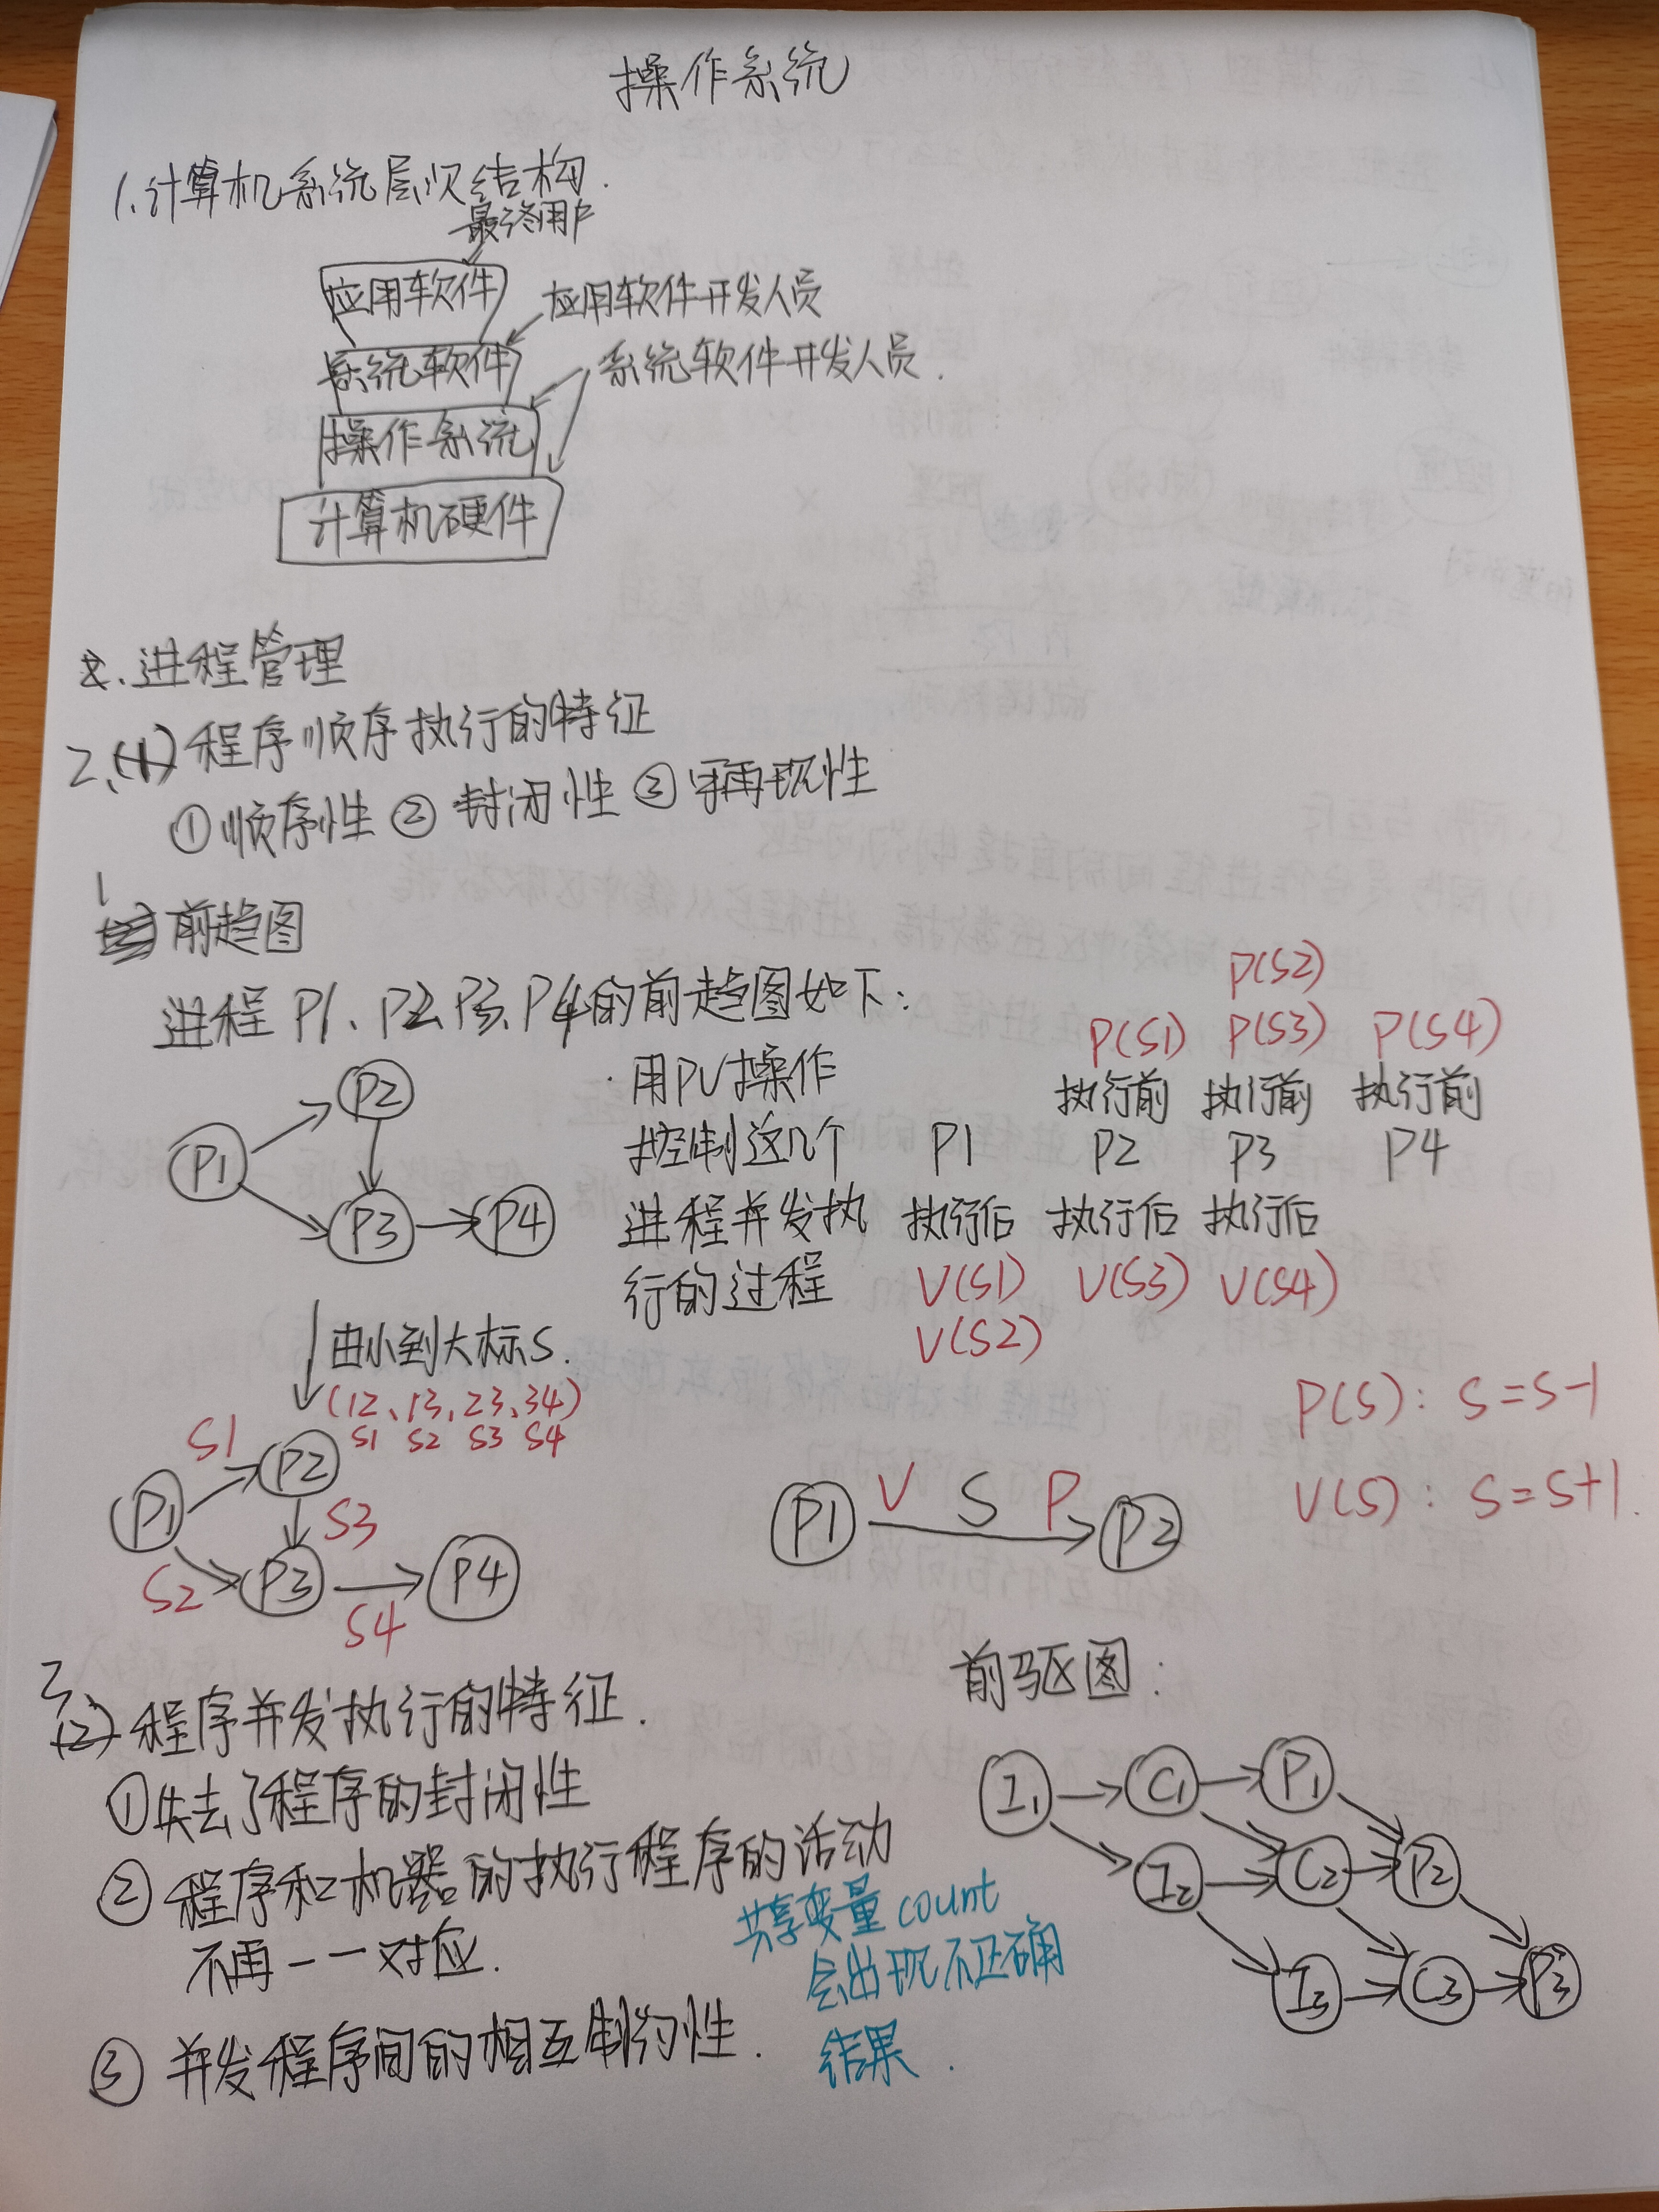 操作系统
1.计算机系统层次结构.
最终用户
应用软件
应用软件开发人员
系统软件
系统软件开发人员.
操作系统
计算机硬件
2.进程管理
2.(1)程序顺序执行的特征
①顺序性 ② 封闭性 ③ 可再现性
1
前趋图
进程 P1、P2、P3、P4的前趋图如下:
P1
P2
P3
P4
用PV操作
控制这几个
进程并发执
行的过程
P(S2)
P(S1) P(S3) P(S4)
执行前 执行前 执行前
P1 P2 P3 P4
执行后 执行后 执行后
V(S1) V(S3) V(S4)
V(S2)
由小到大标S.
(12、13、23、34)
S1 S2 S3 S4
P1
S1
P2
S3
S2
P3
S4
P4
P1 V S P P2
P(S): S=S-1
V(S): S=S+1.
3
(2)程序并发执行的特征.
①失去了程序的封闭性
② 程序和机器的执行程序的活动
不再一一对应.
③ 并发程序间的相互制约性.
共享变量count
会出现不正确
结果.
前驱图:
I1 C1 P1
I2 C2 P2
I3 C3 P3